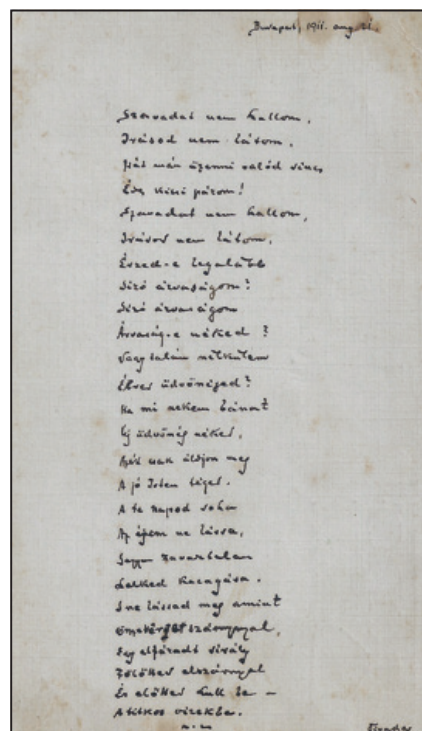 Budapest, 1911. aug 21.
Szavadat nem hallom,
Irásod nem látom.
Hát már üzenni valód nincs
Édes kicsi párom!
Szavadat nem hallom,
Irásod nem látom,
Érzed-e legalább
Síró árvaságom?
Síró árvaságom
Árvaság-e néked?
Vagy talán nélkülem
Élved üdvösséged?
Ha mi nekem bánat
Új üdvösség néked,
Azért csak áldjon meg
A jó Isten téged.
A te napod soha
Az éjem ne lássa,
Lelked kacagása.
S ne lássad meg amint
szárnnyal,
Egy elfáradt sirály
Fölötted elszárnyal
És előtted hull be –
A titkos vizekbe.